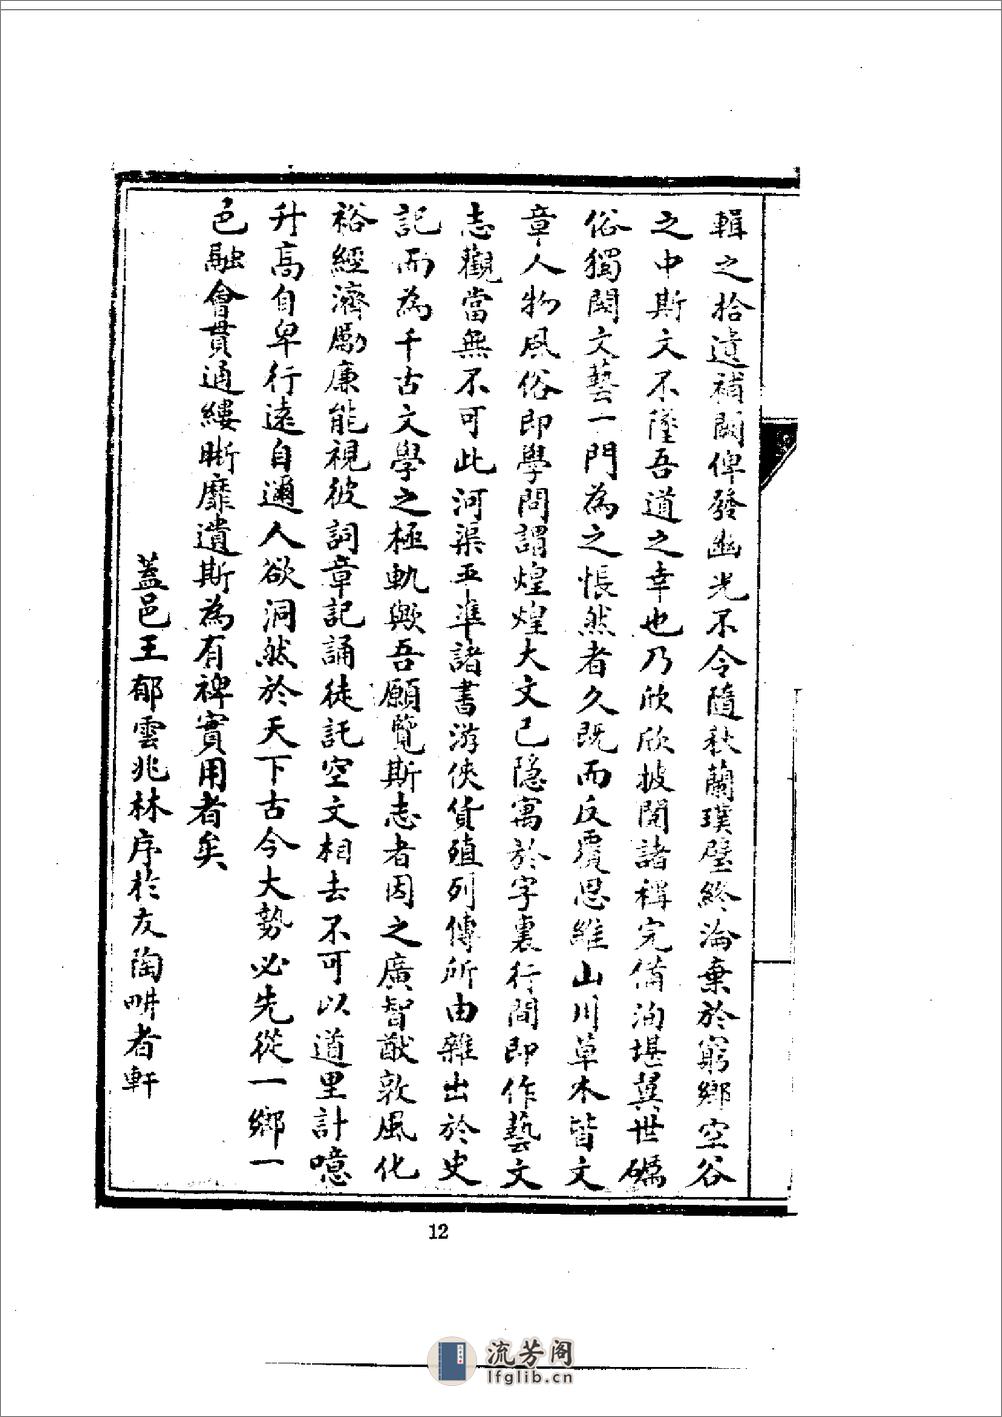 輯之拾遺補闕俾發幽光不令隨秋蘭璞壁終淪棄於窮鄉空谷
之中斯文不墜吾道之幸也乃欣欣披閱諸稱完備洵堪冀世礪
俗獨闕文藝一門為之悵然者久既而反覆思維山川草木皆文
章人物風俗即學問謂煌煌大文已隱寓於字裏行間即作藝文
志觀當無不可此河渠平準諸書游俠貨殖列傳所由雜出於史
記而為千古文學之極軌歟吾願覽斯志者因之廣智猷敦風化
裕經濟勵廉能視彼詞章記誦徒託空文相去不可以道里計噫
升高自卑行遠自邇人欲洞然於天下古今大勢必先從一鄉一
邑融會貫通縷晰靡遺斯為有裨實用者矣
蓋邑王郁雲兆林序於友陶畊者軒
12
流芳阁
lfglib.cn